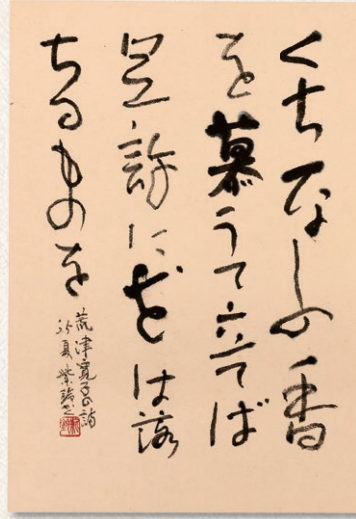 くちなしの香
を慕うて立てば
足許に花は落
ちるものを
荒津寛子の詩